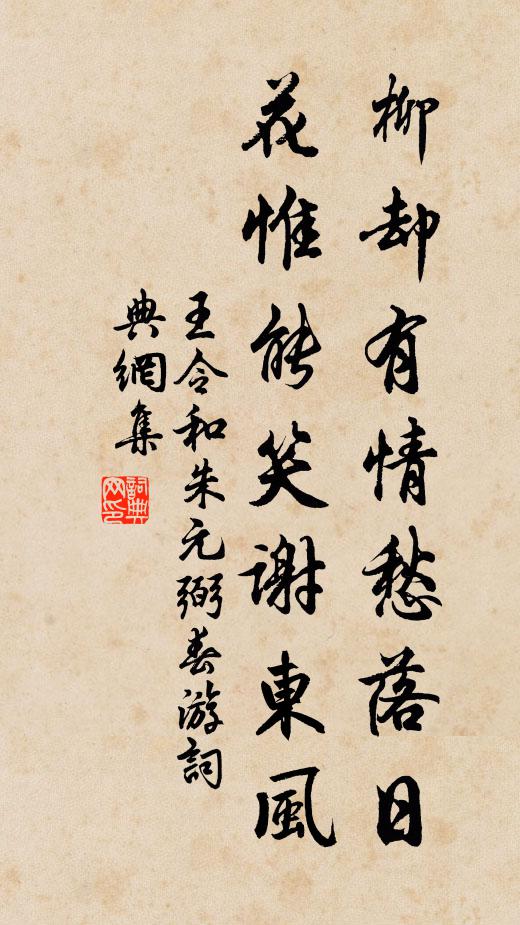 柳却有情愁落日
花惟能笑謝東風
王令和朱元弼春游詞
典網集
詞典网印